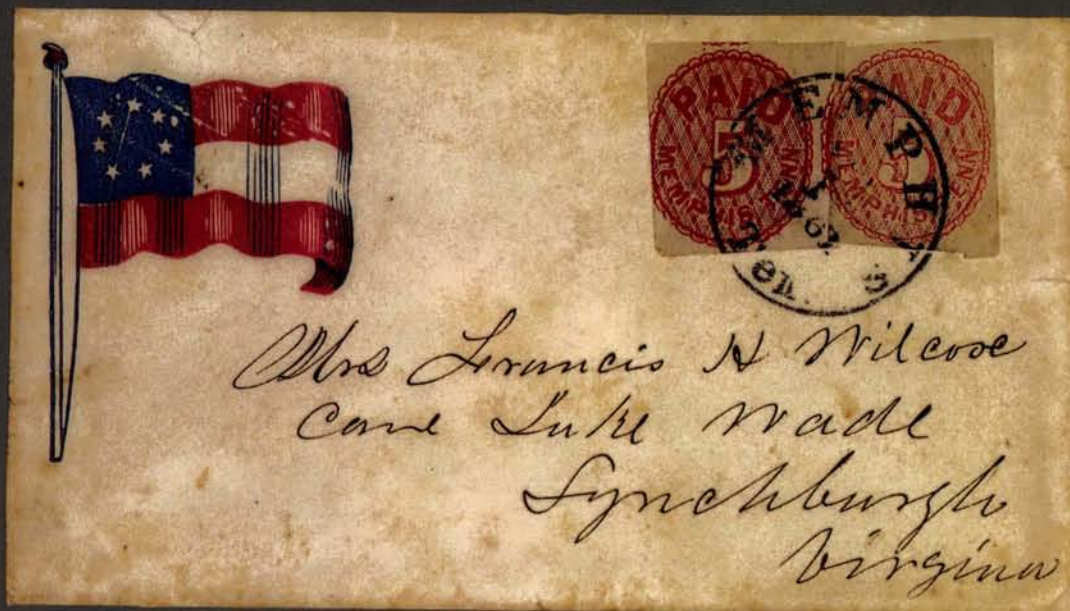 PAID
5
MEMPHIS TENN
PAID
5
MEMPHIS TENN
MEMPHIS
Ten.
Mrs Francis H Wilcox
Care Luke Wade
Lynchburgh
Virginia